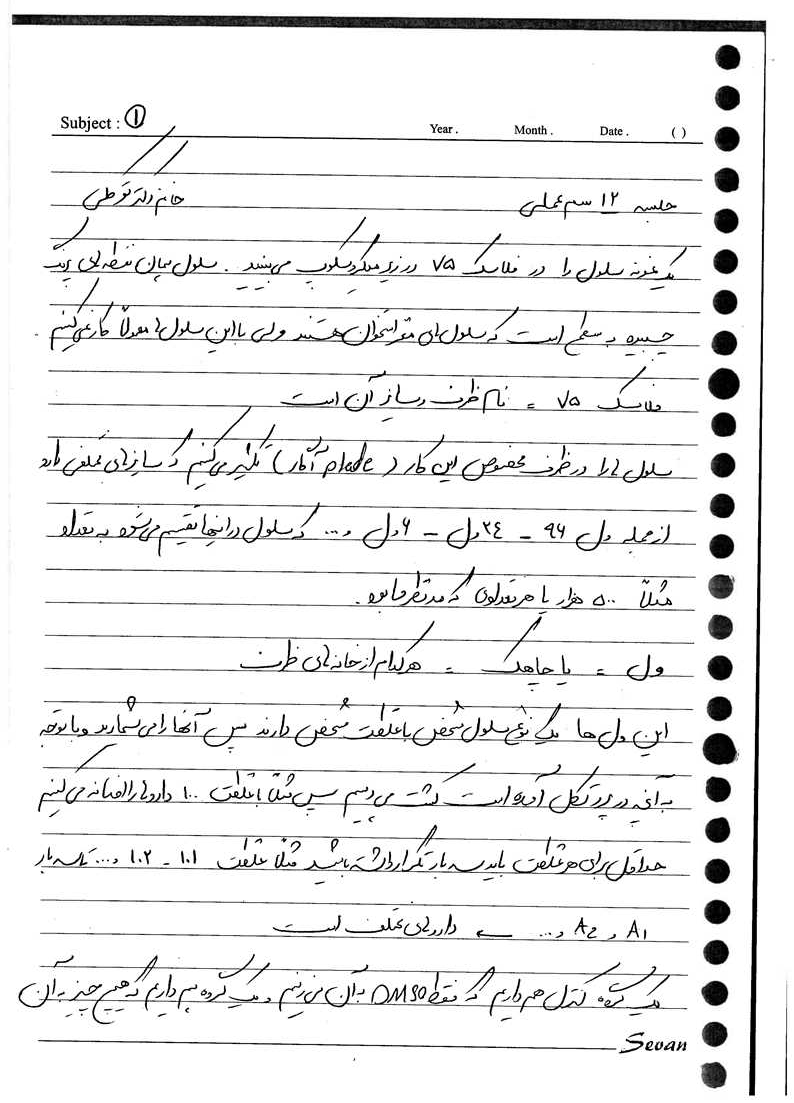 Subject : ①
Year . Month . Date . ( )
جلسه ۱۲ سم عملی خانم دکتر توسلی
یک نمونه سلول را در فلاسک ۷۵ در زیر میکروسکوپ می بینید . سلول
چسبیده به سطح است که سلول های مغز استخوان هستند ولی با این سلول ها معمولاً کار نمی کنیم
فلاسک ۷۵ = نام ظرف و سایز آن است
سلول ها را در ظرف مخصوص این کار ( plade آگار ) تکثیر می کنیم که سایزهای مختلفی دارد
از جمله ول ۹۶ – ۲۴ ول – ۶ ول و ... که سلول در اینجا تقسیم می شود به تعداد
مثلاً ۵۰۰ هزار یا هر تعدادی که مدنظر ما بود .
ول = یا چاهک = هرکدام از خانه های ظرف
این ول ها یک نوع سلول مشخص با غلظت مشخص دارند پس آنها را می شمارید و با توجه
به آنچه در پروتکل آمده است کشت می دهیم سپس مثلاً با غلظت ۱۰۰ داروها را اضافه می کنیم
حداقل برای هر غلظت باید سه بار تکرار داشته باشید مثلاً غلظت ۱۰۱ – ۱۰۲ و ... تا سه بار
A1 و A2 و ... ← داروهای مختلف است
یک گروه کنترل هم داریم که فقط DMSO به آن می زنیم و یک گروه هم داریم که هیچ چیز به آن
Sevan